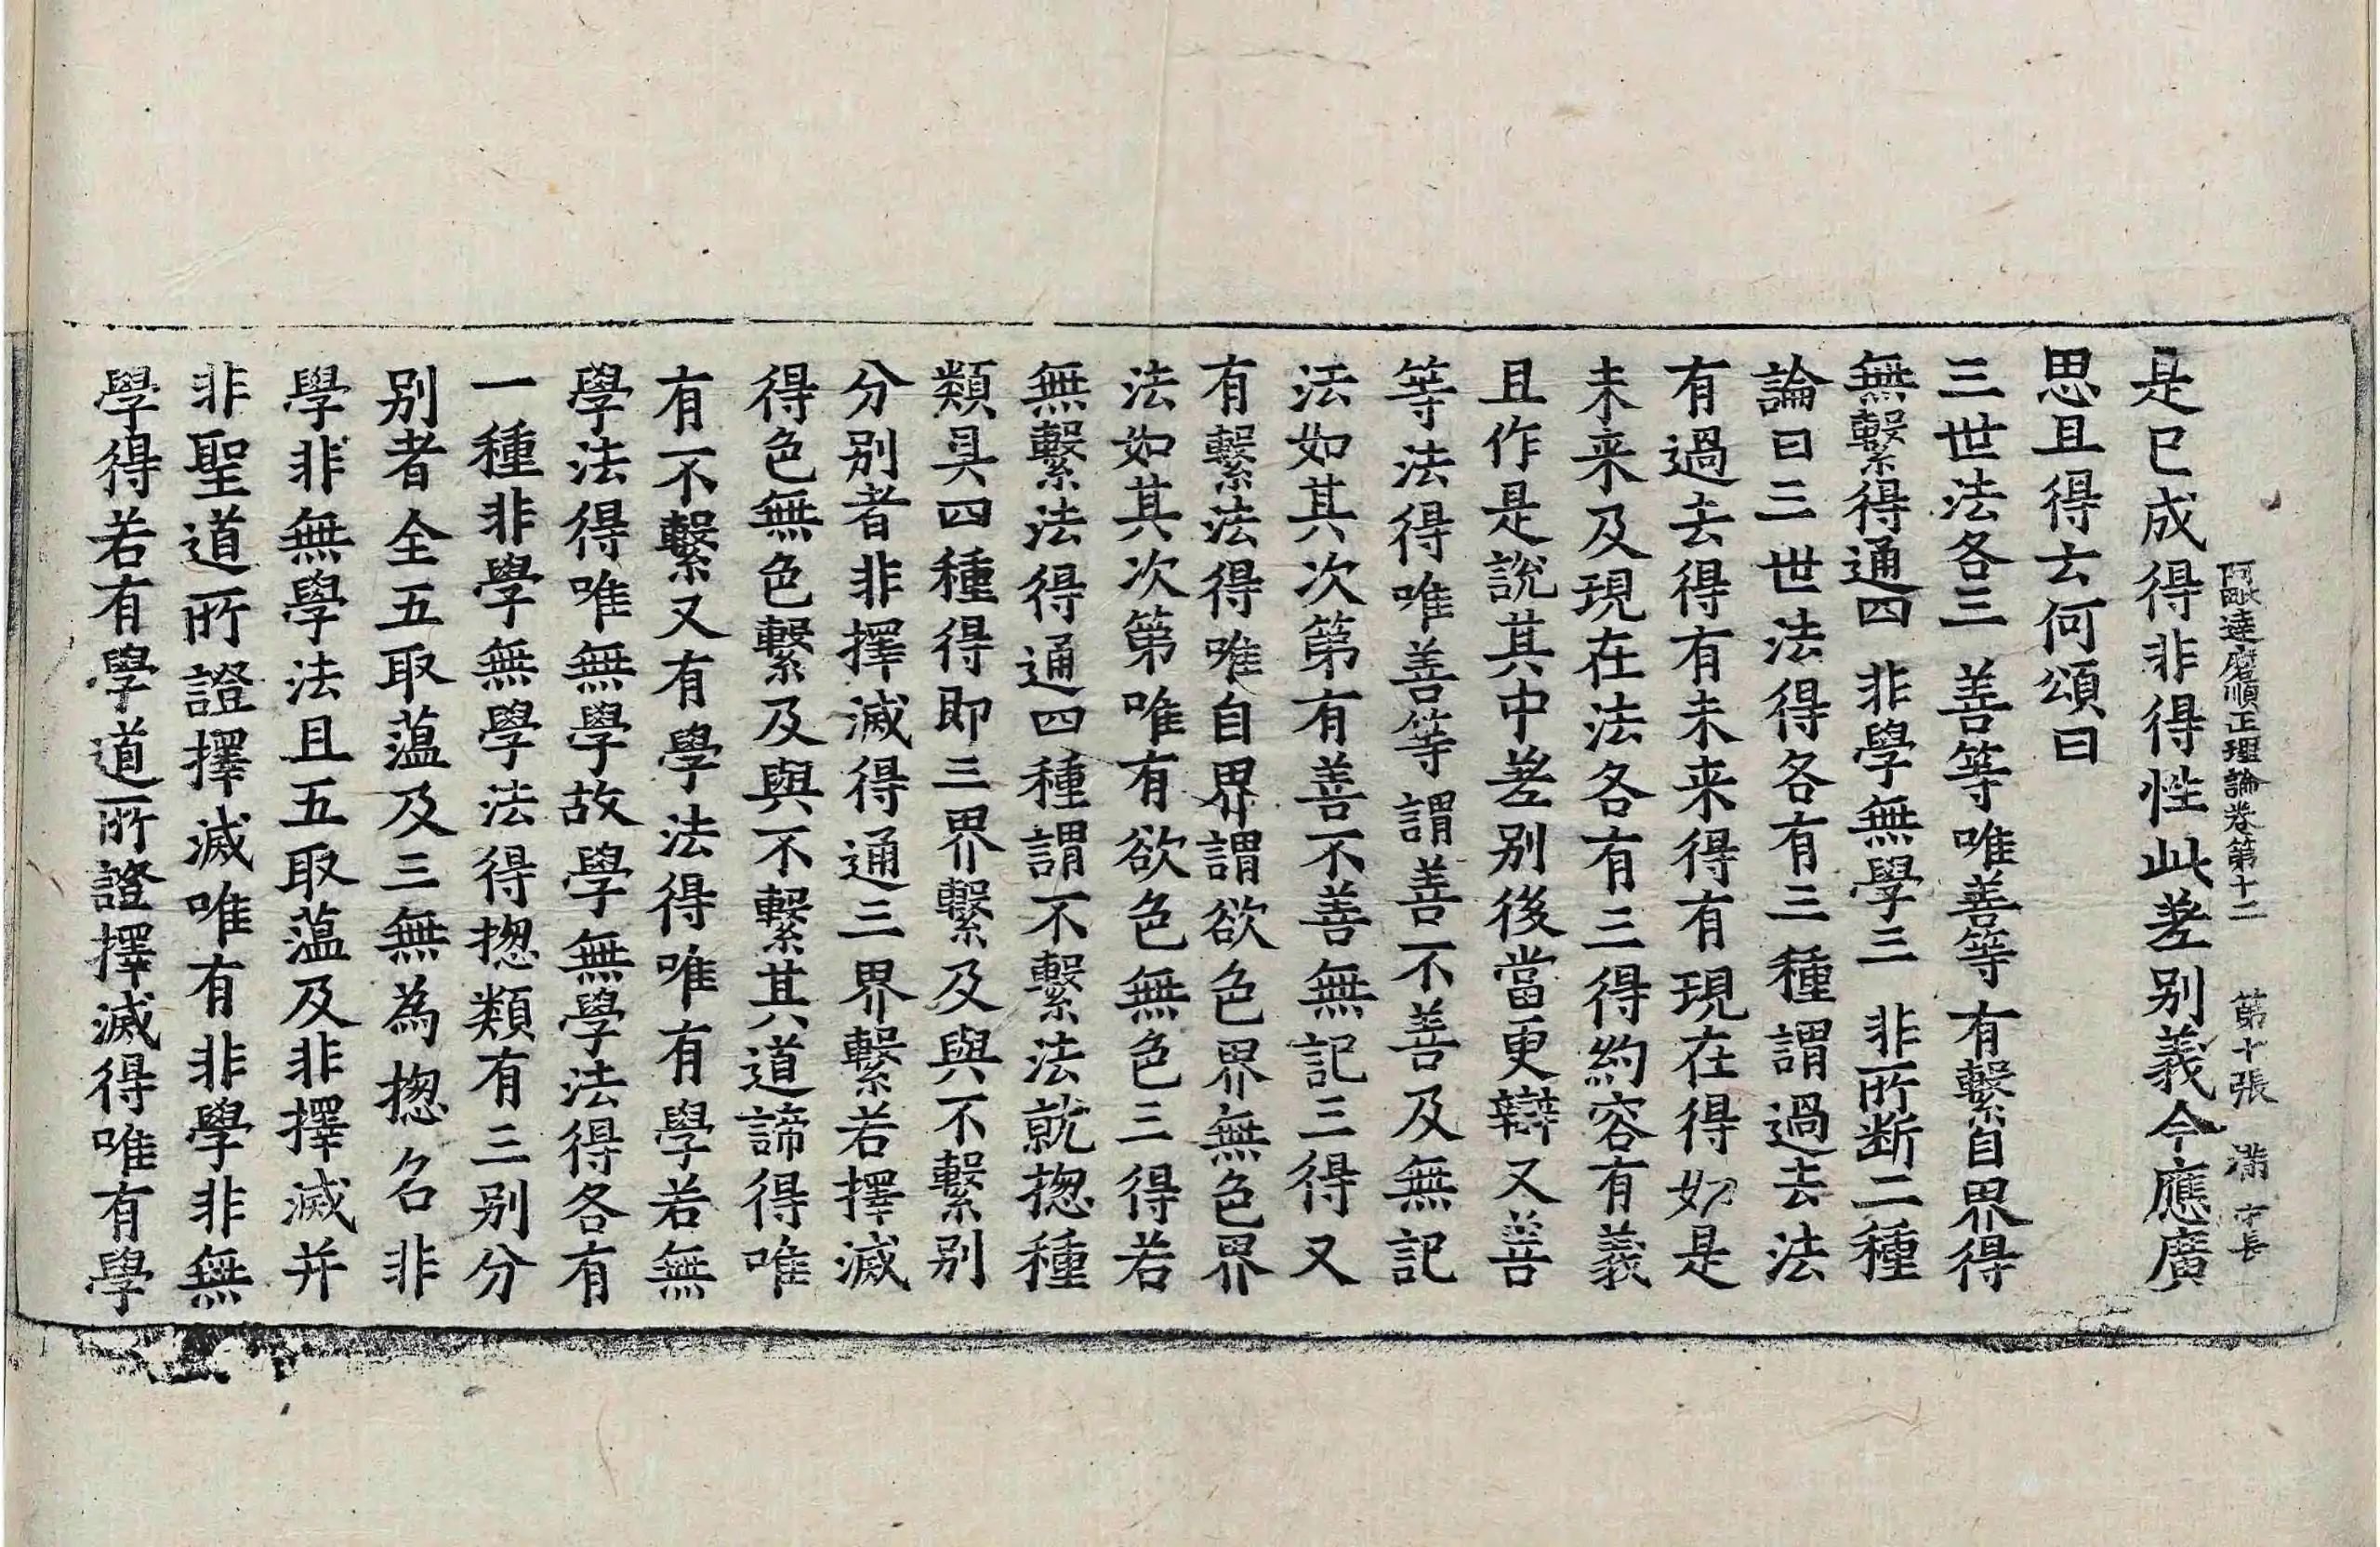 阿毗達磨順正理論卷第十二 第十張 滿 守長
是已成得非得性此差别義今應廣
思且得云何頌曰
三世法各三 善等唯善等 有繫自界得
無繫得通四 非學無學三 非所断二種
論曰三世法得各有三種謂過去法
有過去得有未来得有現在得如是
未来及現在法各有三得約容有義
且作是說其中差别後當更辯又善
等法得唯善等謂善不善及無記
法如其次第有善不善無記三得又
有繫法得唯自界謂欲色界無色界
法如其次第唯有欲色無色三得若
無繫法得通四種謂不繫法就揔種
類具四種得即三界繫及與不繫别
分别者非擇滅得通三界繫若擇滅
得色無色繫及與不繫其道諦得唯
有不繫又有學法得唯有學若無
學法得唯無學故學無學法得各有
一種非學無學法得揔類有三别分
别者全五取薀及三無為揔名非
學非無學法且五取薀及非擇滅并
非聖道所證擇滅唯有非學非無
學得若有學道所證擇滅得唯有學